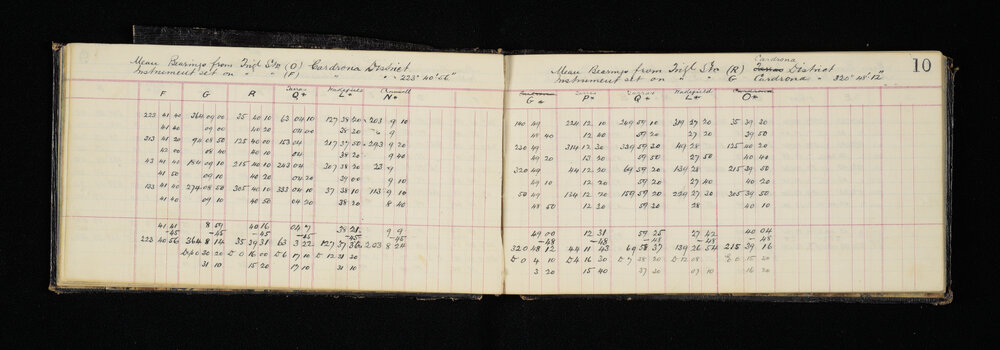 Mean Bearings from Trigl Stn (O) Cardrona District
Instrument set on " " (F) " " " 223° 40' 56"
Tarras Hadefield Cromwell
F G R Q* L* N*
223 41 40 364 09 10 35 40 10 63 04 10 127 38 20 203 9 10
41 40 09 00 40 20 04 00 38 20 9
313 41 20 90 08 50 125 40 00 153 04 217 37 50 293 9 20
42 00 08 40 40 10 04 38 20 9 40
43 41 40 184 09 10 215 40 10 243 04 307 38 20 23 9
41 50 09 10 40 20 04 20 39 00 9 10
133 41 40 274 08 50 305 40 10 333 04 10 37 38 10 113 9 10
41 40 09 10 40 50 04 20 38 20 8 40
41 41 8 59 40 16 04 7 38 21 9 9
-45 -45 -45 -45 -45 -45
223 40 56 364 8 14 35 39 31 63 3 22 127 37 36 203 8 24
0 30 20 0 16 00 6 17 10 12 31 20
31 10 15 20 17 10 31 10
10
Cardrona
Mean Bearings from Trigl Stn (R) Tarras District
Instrument set on " " G Cardrona " 320° 48' 12"
Tarras Tarras Hadefield Cardrona
G* P* Q* L* O*
140 49 224 12 10 249 59 10 319 27 20 35 39 20
48 40 12 40 59 20 27 20 39 50
230 49 314 12 30 339 59 20 49 28 125 40 20
49 20 13 20 59 50 27 50 40 40
320 49 44 12 20 69 59 20 139 28 215 39 50
49 10 12 20 59 20 27 40 40 20
50 49 134 12 20 159 59 20 229 27 30 305 39 50
48 50 12 20 59 20 28 40 10
49 00 12 31 59 25 27 42 40 04
-48 -48 -48 -48 -48
320 48 12 44 11 43 69 58 37 139 26 54 215 39 16
0 4 10 4 16 30 7 38 20 12 08 0 15 20
3 20 15 40 37 20 07 10 16 20